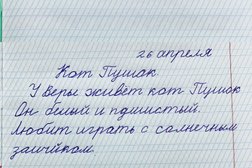 26 апреля
Кот Пушок
У Веры живёт кот Пушок
Он белый и пушистый.
Любит играть с солнечным
зайчиком